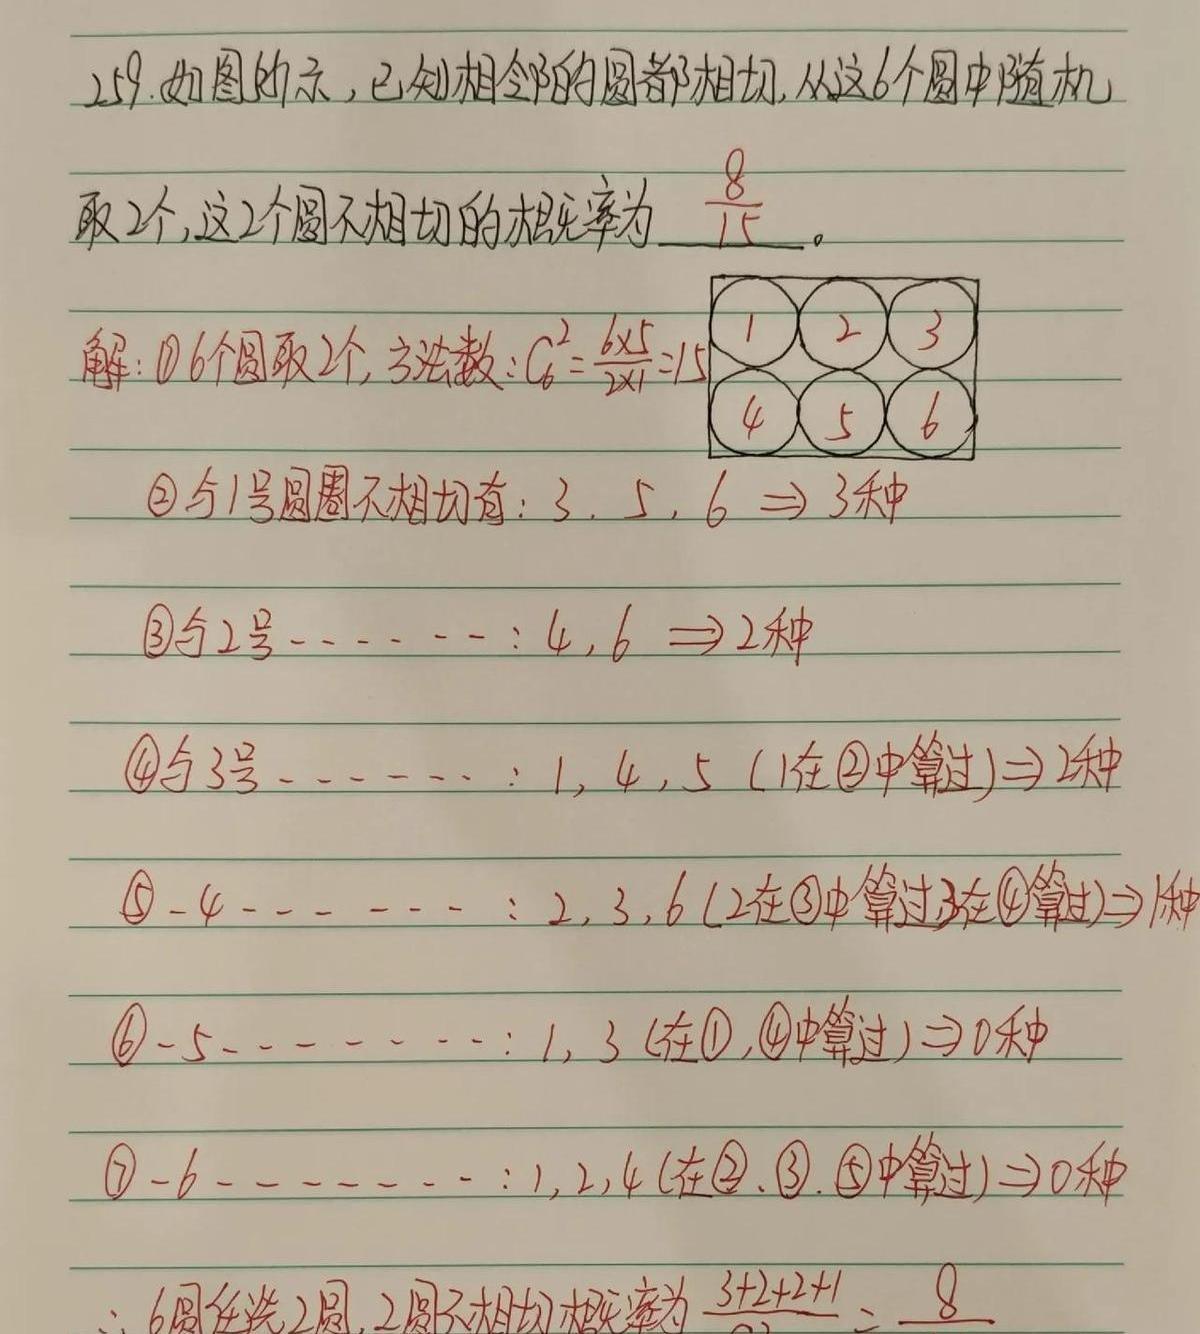 259.如图所示,已知相邻的圆都相切,从这6个圆中随机
取2个,这2个圆不相切的概率为 8/15 。
解:①6个圆取2个,方法数:C₆²=6×5/2×1=15
1 2 3
4 5 6
②与1号圆圈不相切有:3、5、6⇒3种
③与2号-------:4,6⇒2种
④与3号-------:1,4,5(1在②中算过)⇒2种
⑤-4-------:2,3,6(2在③中算过,3在④算过)⇒1种
⑥-5--------:1,3(在①,④中算过)⇒0种
⑦-6--------:1,2,4(在②、③、⑤中算过)⇒0种
∴6圆任选2圆,2圆不相切概率为 3+2+2+1 = 8